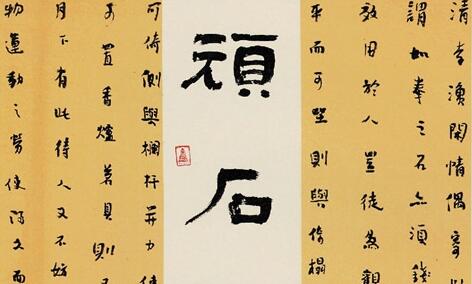 清李漁閑情偶寄
謂如拳之石亦須錢
效用於人豈徒為觀
平而可坐則與椅榻
頑石
可倚則與欄杆并力使
可置香爐茗具則又
月下有此待人又不妨
物運動之勞使得久而